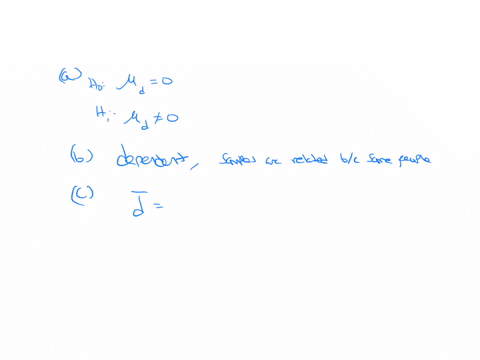 (a) H₀: μ_d = 0
H₁: μ_d ≠ 0
(b) dependent, samples are related b/c same people
(c) d̄ =